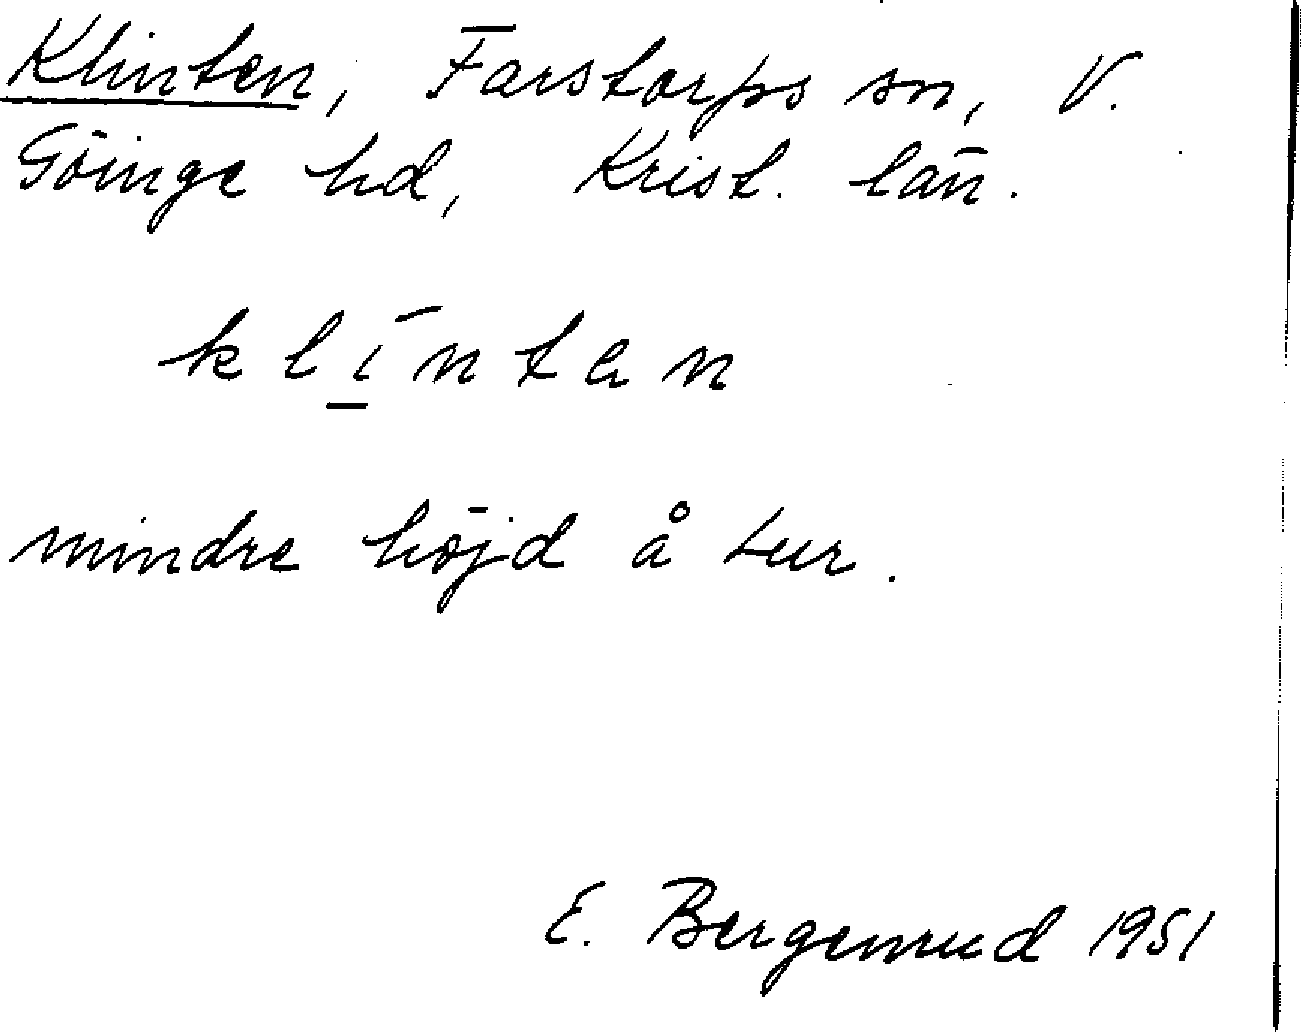 Klinten, Farstorps sn, V.
Göinge hd, Krist. län.
klintan
mindre höjd å Lur.
E. Bergenrud 1951